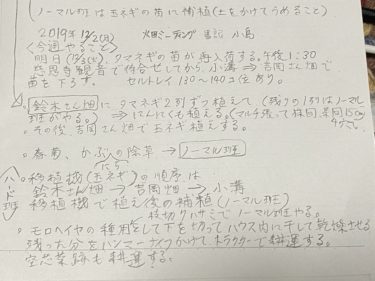 ノーマル班は玉ネギの苗に補植(土をかけてうめること)
2019年12/2(月) 火田ミーティング 書記 小島
<今週やること>
明日(12/3(土)、タマネギの苗が再入荷する。午後1:30
慈恩寺観音で待合せしてから、小溝→吉岡さん畑で
苗を下ろす。セルトレイ130~140位あり。
鈴木さん畑にタマネギ2列ずつ植えて(残りの1列はノーマル
班がやる。)→にんにくも植える。(マルチ張って株間、条間15cm
4穴)
その後吉岡さん畑で玉ネギ植えする。
春菊、かぶの除草→ノーマル班
にら
ハード班
移植機(玉ネギ)の順序は
鈴木さん畑→吉岡畑→小溝
移植機で植え後の補植(ノーマル班)
枝切りハサミでノーマル班やる。
モロヘイヤの種用として下を切ってハウス内に干して乾燥させる
残った分をハンマーナイフかけてトラクターで耕運する。
空芯菜跡も耕運する。